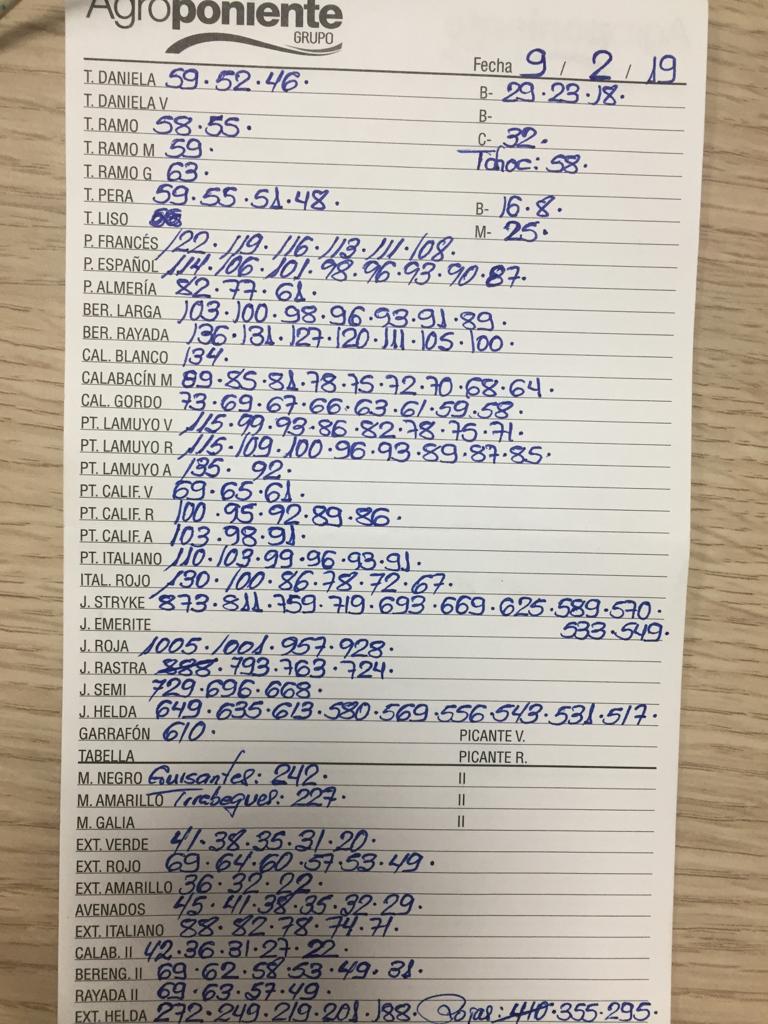 Agroponiente
GRUPO
Fecha 9 / 2 / 19
T. DANIELA 59·52·46· B- 29·23·18·
T. DANIELA V B-
T. RAMO 58·55· C- 32·
T. RAMO M 59· Tchoc: 58·
T. RAMO G 63·
T. PERA 59·55·51·48· B- 16·8·
T. LISO M- 25·
P. FRANCÉS 122·119·116·113·111·108·
P. ESPAÑOL 114·106·101·98·96·93·90·87·
P. ALMERÍA 82·77·61·
BER. LARGA 103·100·98·96·93·91·89·
BER. RAYADA 136·131·127·120·111·105·100·
CAL. BLANCO 134·
CALABACÍN M 89·85·81·78·75·72·70·68·64·
CAL. GORDO 73·69·67·66·63·61·59·58·
PT. LAMUYO V 115·99·93·86·82·78·75·71·
PT. LAMUYO R 115·109·100·96·93·89·87·85·
PT. LAMUYO A 135· 92·
PT. CALIF. V 69·65·61·
PT. CALIF. R 100·95·92·89·86·
PT. CALIF. A 103·98·91·
PT. ITALIANO 110·103·99·96·93·91·
ITAL. ROJO 130·100·86·78·72·67·
J. STRYKE 873·811·759·719·693·669·625·589·570·
J. EMERITE 533·549·
J. ROJA 1005·1001·957·928·
J. RASTRA 888·793·763·724·
J. SEMI 729·696·668·
J. HELDA 649·635·613·580·569·556·543·531·517·
GARRAFÓN 610· PICANTE V.
TABELLA PICANTE R.
M. NEGRO Guisantes: 242· II
M. AMARILLO Tirabeques: 227· II
M. GALIA II
EXT. VERDE 41·38·35·31·20·
EXT. ROJO 69·64·60·57·53·49·
EXT. AMARILLO 36·32·22·
AVENADOS 45·41·38·35·32·29·
EXT. ITALIANO 88·82·78·74·71·
CALAB. II 42·36·31·27·22·
BERENG. II 69·62·58·53·49·31·
RAYADA II 69·63·57·49·
EXT. HELDA 272·249·219·201·188· Rojas: 410·355·295·